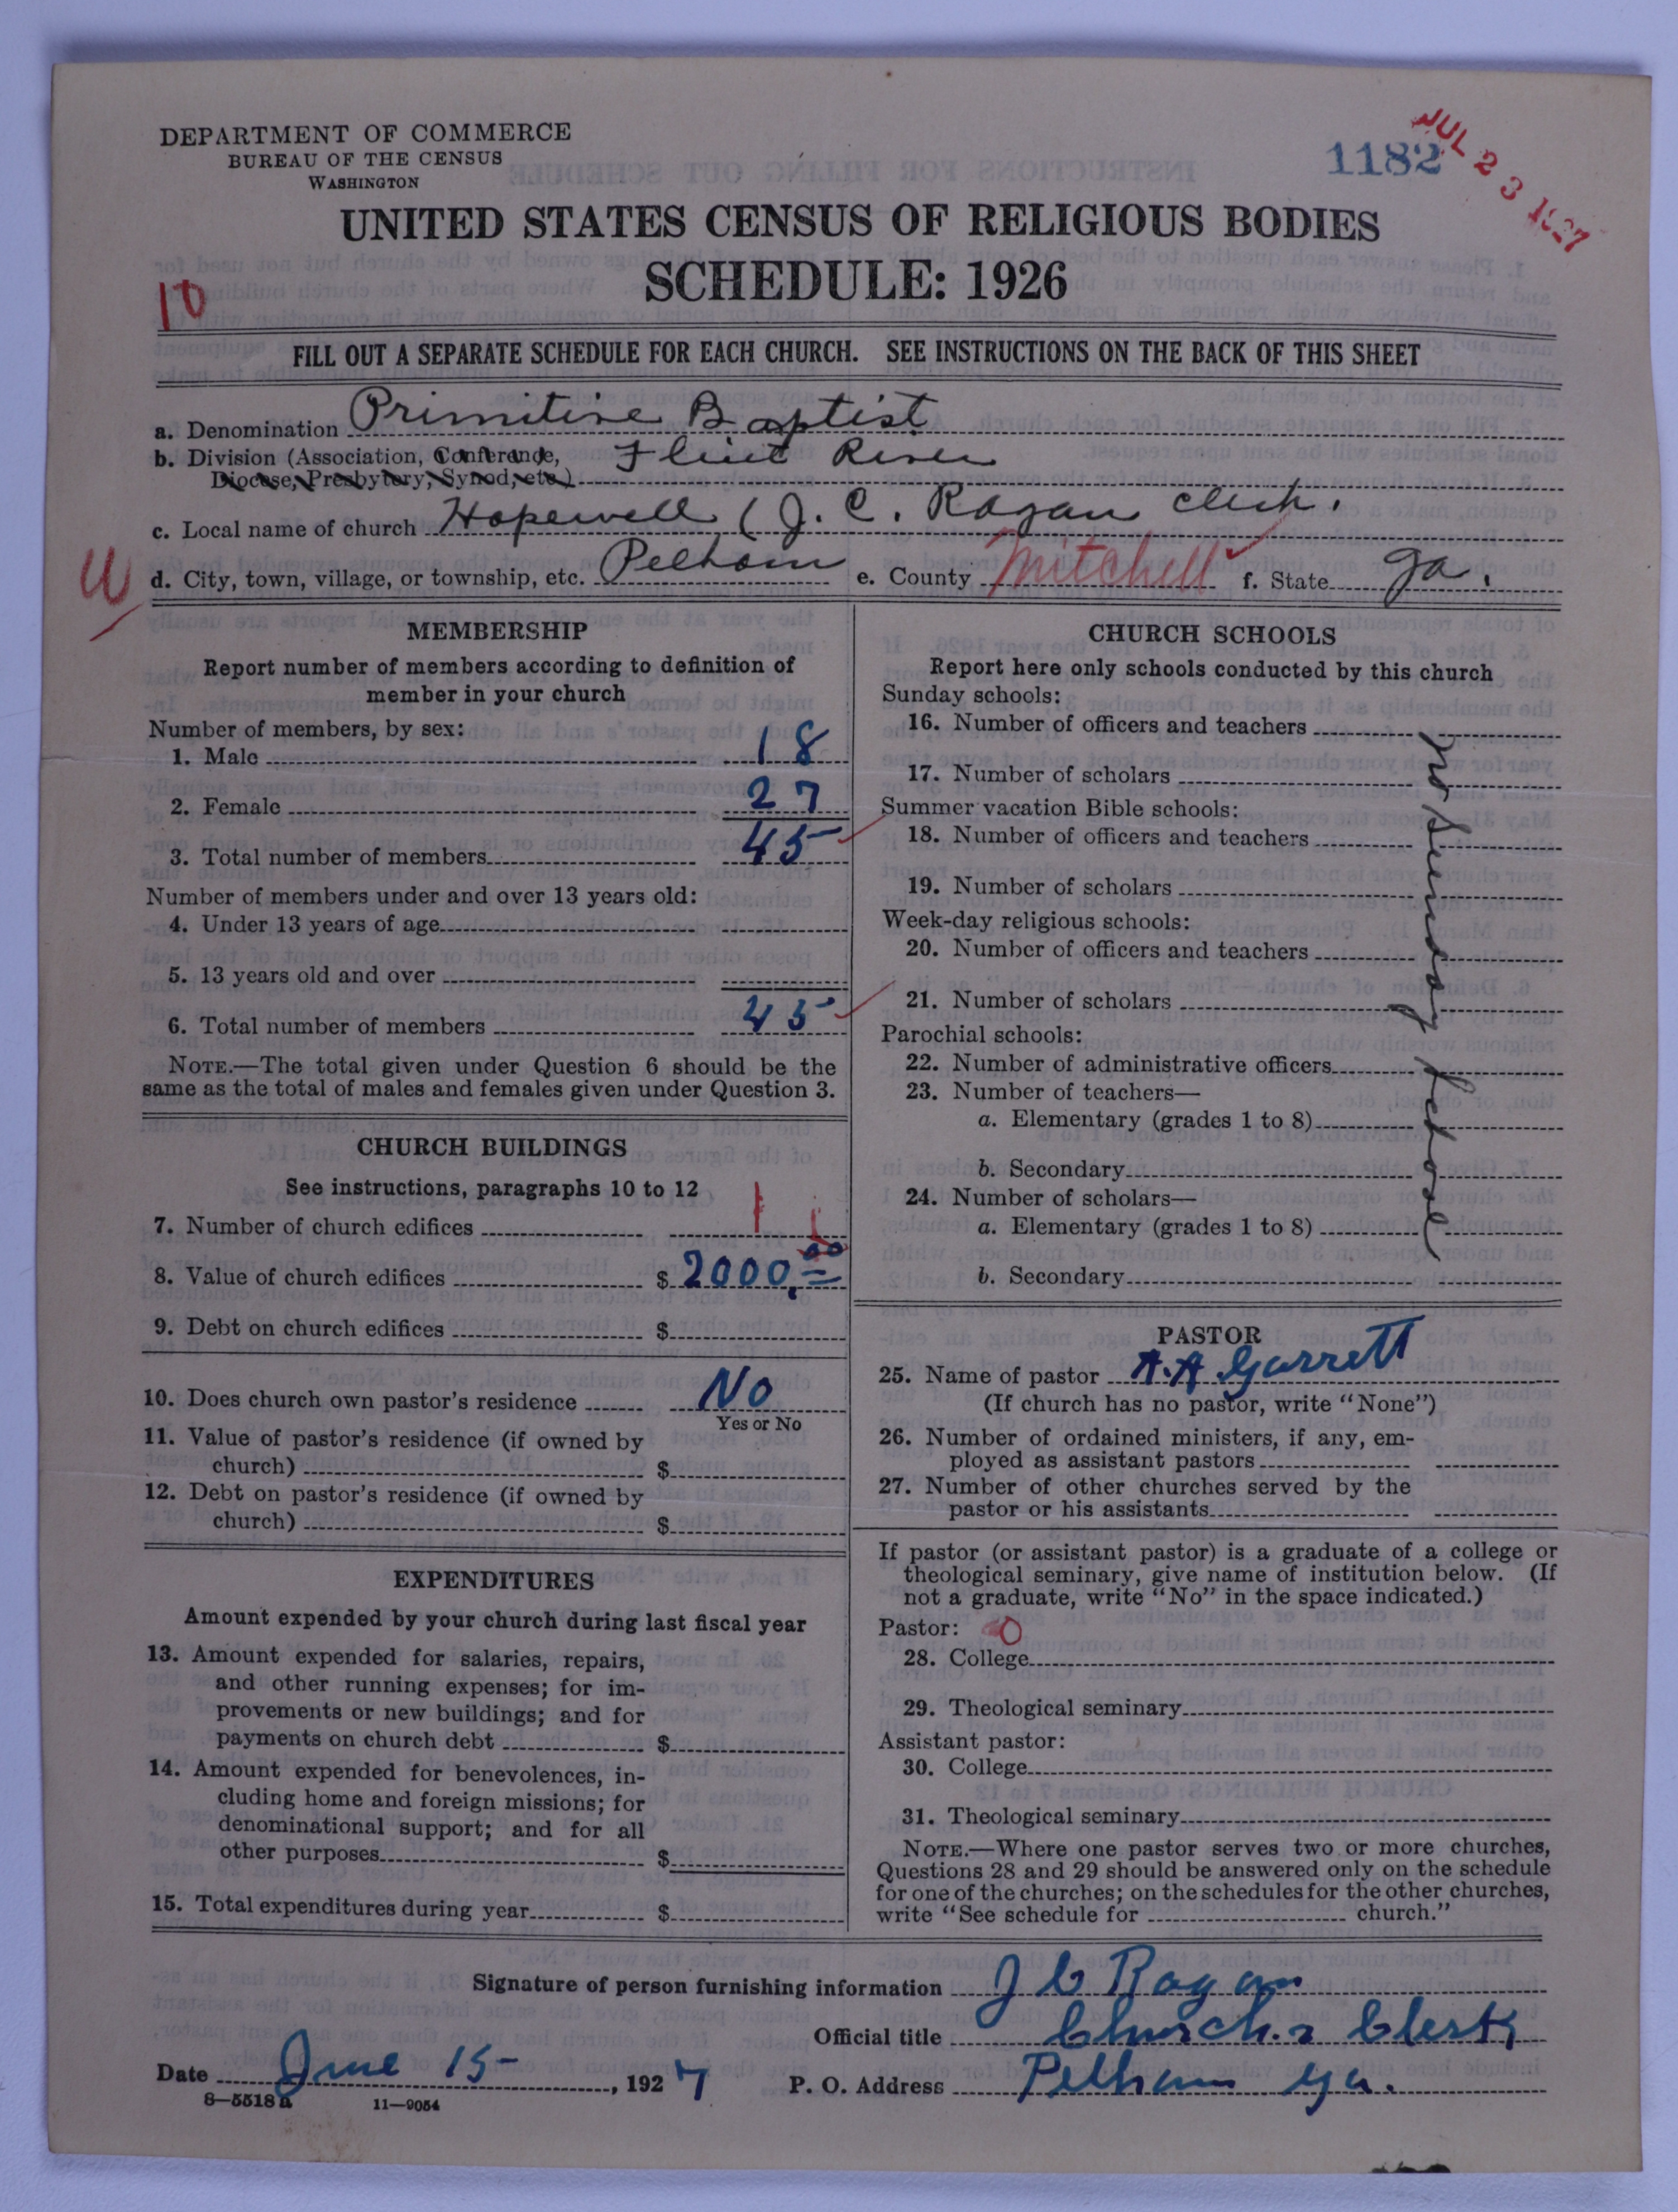 DEPARTMENT OF COMMERCE
BUREAU OF THE CENSUS
WASHINGTON
1182
JUL 23 1927
UNITED STATES CENSUS OF RELIGIOUS BODIES
SCHEDULE: 1926
10
FILL OUT A SEPARATE SCHEDULE FOR EACH CHURCH. SEE INSTRUCTIONS ON THE BACK OF THIS SHEET
a. Denomination Primitive Baptist
b. Division (Association, Conference, Flint River
Diocese, Presbytery, Synod, etc.)
c. Local name of church Hopewell (J. C. Ragan Clerk.
W
d. City, town, village, or township, etc. Pelham e. County Mitchell f. State Ga.
MEMBERSHIP
Report number of members according to definition of
member in your church
Number of members, by sex:
1. Male 18
2. Female 27
3. Total number of members 45
Number of members under and over 13 years old:
4. Under 13 years of age
5. 13 years old and over
6. Total number of members 45
NOTE.—The total given under Question 6 should be the
same as the total of males and females given under Question 3.
CHURCH BUILDINGS
See instructions, paragraphs 10 to 12
7. Number of church edifices 1 1
8. Value of church edifices $ 2000.00
9. Debt on church edifices $
10. Does church own pastor's residence No
Yes or No
11. Value of pastor's residence (if owned by
church) $
12. Debt on pastor's residence (if owned by
church) $
EXPENDITURES
Amount expended by your church during last fiscal year
13. Amount expended for salaries, repairs,
and other running expenses; for im-
provements or new buildings; and for
payments on church debt $
14. Amount expended for benevolences, in-
cluding home and foreign missions; for
denominational support; and for all
other purposes $
15. Total expenditures during year $
CHURCH SCHOOLS
Report here only schools conducted by this church
Sunday schools:
16. Number of officers and teachers
17. Number of scholars
Summer vacation Bible schools:
18. Number of officers and teachers
19. Number of scholars
Week-day religious schools:
20. Number of officers and teachers
21. Number of scholars
Parochial schools:
22. Number of administrative officers
23. Number of teachers—
a. Elementary (grades 1 to 8)
b. Secondary
24. Number of scholars—
a. Elementary (grades 1 to 8)
b. Secondary
no Sunday School
PASTOR
25. Name of pastor A. A Garrett
(If church has no pastor, write "None")
26. Number of ordained ministers, if any, em-
ployed as assistant pastors
27. Number of other churches served by the
pastor or his assistants
If pastor (or assistant pastor) is a graduate of a college or
theological seminary, give name of institution below. (If
not a graduate, write "No" in the space indicated.)
Pastor: 0
28. College
29. Theological seminary
Assistant pastor:
30. College
31. Theological seminary
NOTE.—Where one pastor serves two or more churches,
Questions 28 and 29 should be answered only on the schedule
for one of the churches; on the schedules for the other churches,
write "See schedule for church."
Signature of person furnishing information J C Ragan
Official title Church Clerk
Date June 15, 1927 P. O. Address Pelham Ga.
8—5518a 11—9054